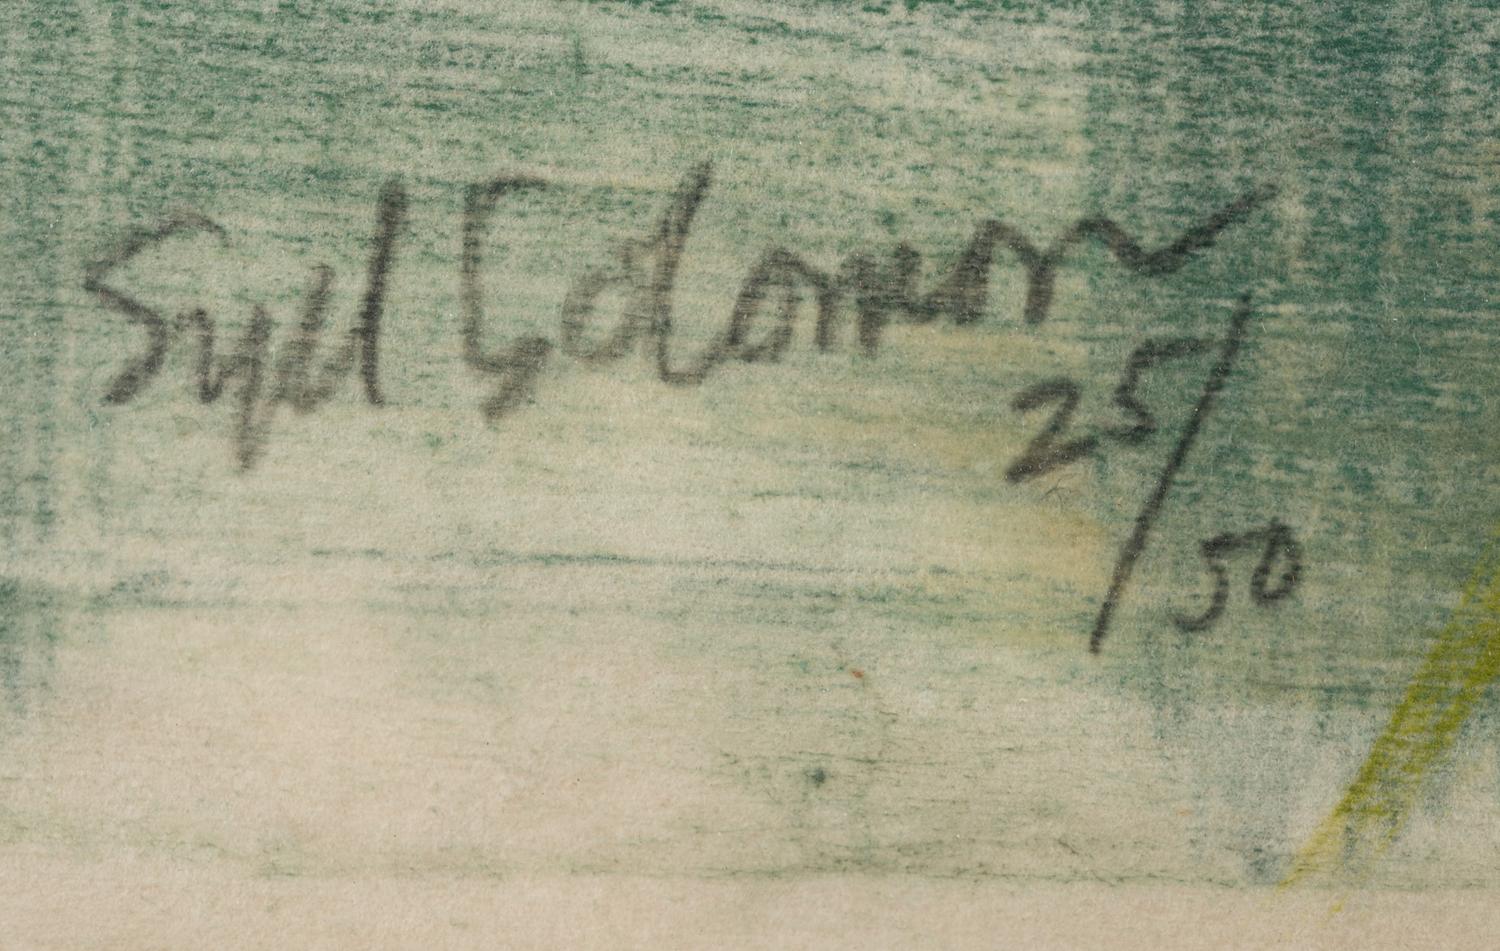 Syd Solomon
25/50